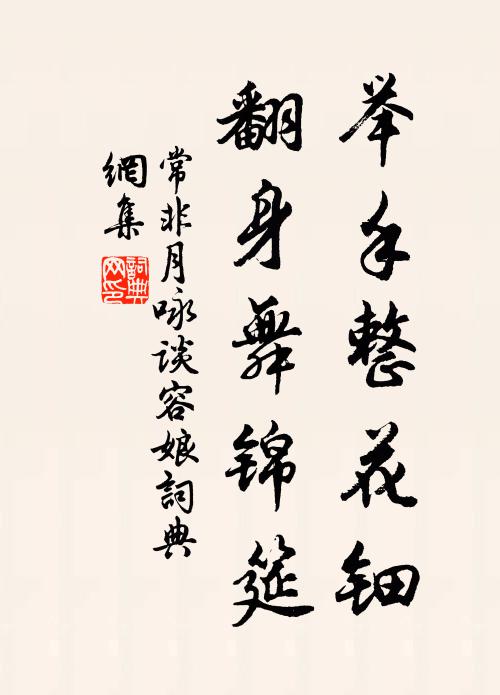 举手整花钿
翻身舞锦筵
常非月咏谈容娘詞典
網集
詞典
网印